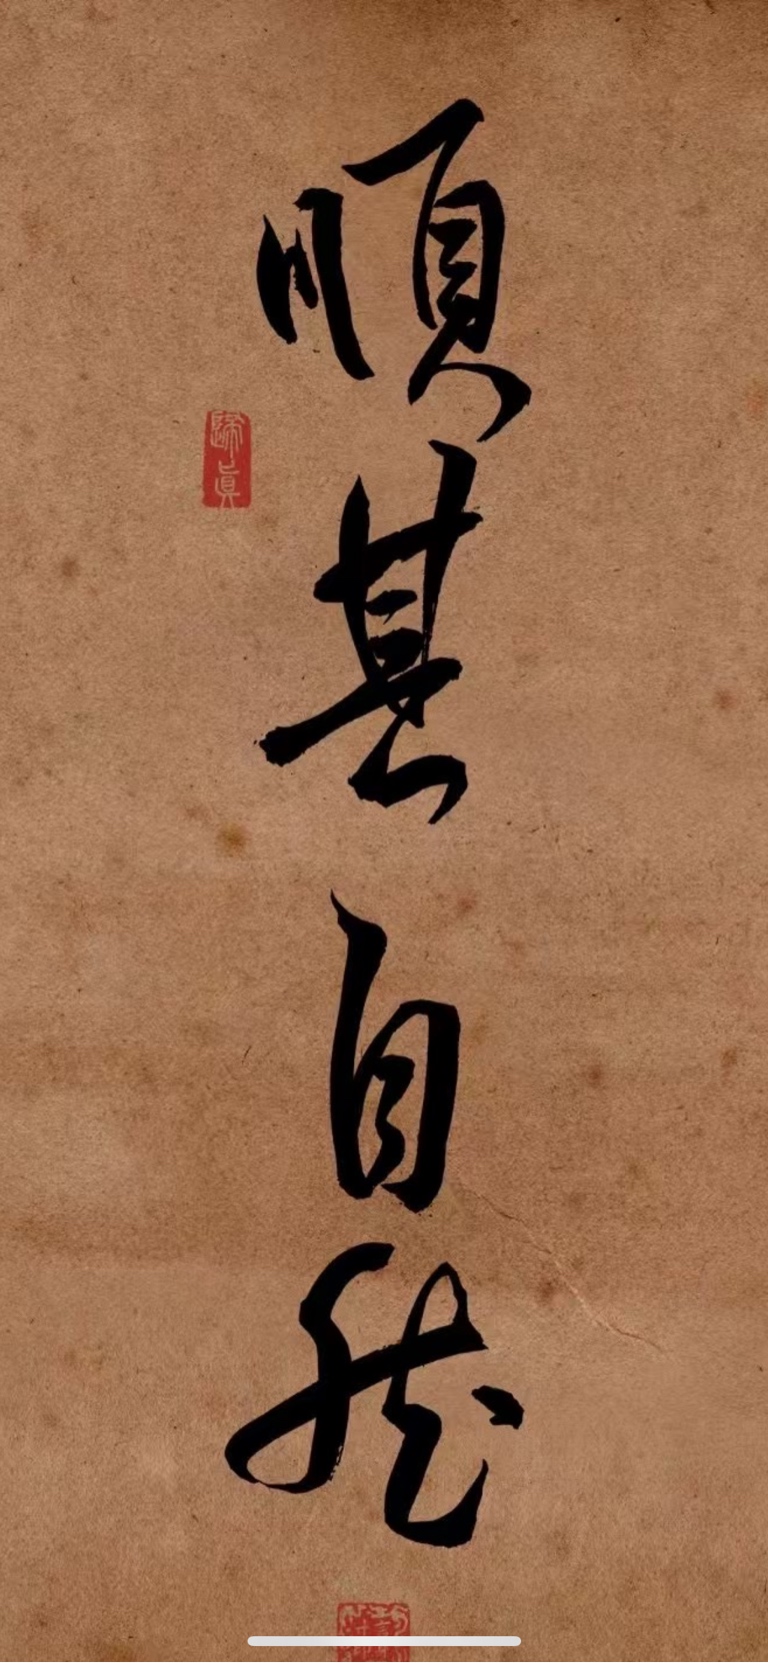 順其自然
歸真